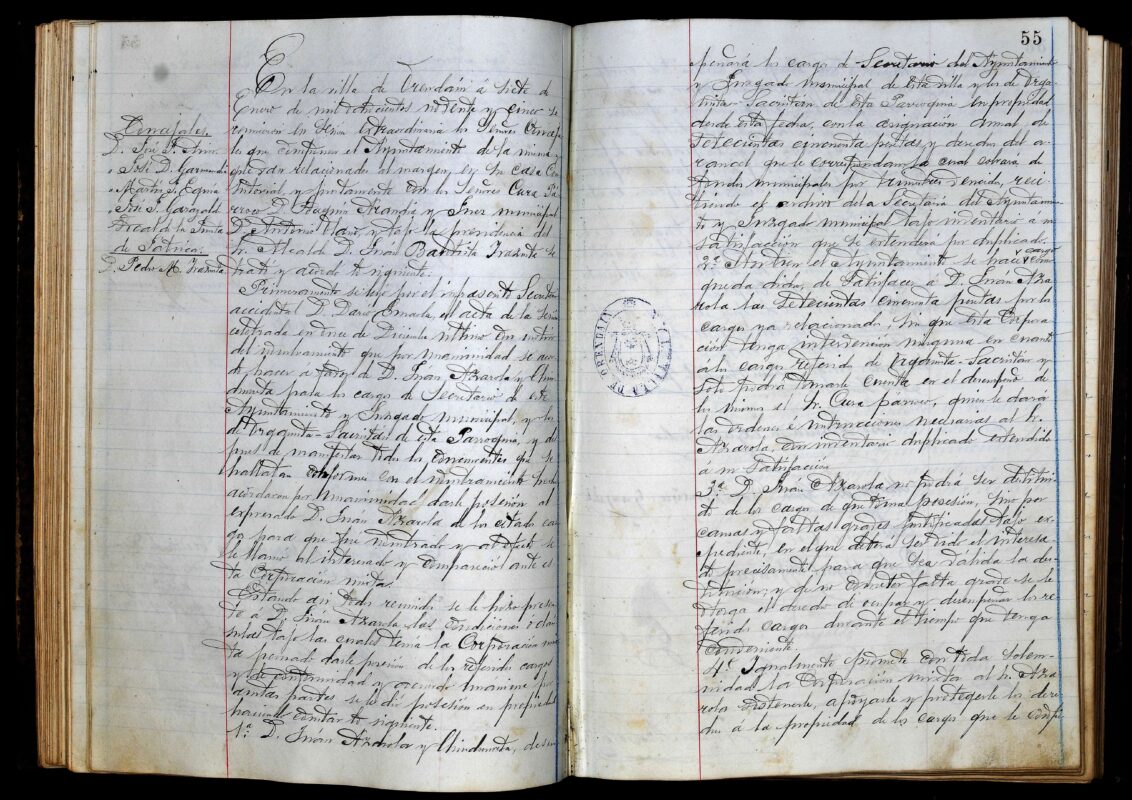 En la villa de Orendain á siete de
Enero de mil ochocientos noventa y cinco se
reunieron en sesion extraordinaria los Señores Conceja-
les que componen el Ayuntamiento de la misma y
que son relacionados al margen, en su casa Con-
sistorial, y juntamente con los Señores Cura Pá-
rroco D. Arandia y Juez municipal
D. Antonio Olano, y bajo la presidencia del
Sr. Alcalde D. Juan Bautista Irazusta se
trató y acordó lo siguiente.
Concejales.
D. José
" José D. Garmendia
" Martin J. Eguia
" José J. Garagalde
Vocal de la Junta
de Fábrica.
D. Pedro M. Irazusta
Primeramente se leyó por el infrascrito Secretario
accidental D. Dario el acta de la sesion
celebrada en once de Diciembre ultimo
del nombramiento que por unanimidad se acor-
dó hacer a favor de D. Juan Azarola y Chin-
churreta para los cargos de Secretario de este
Ayuntamiento y Juzgado municipal, y los
de Organista-Sacristan de esta Parroquia, y des-
pues de manifestar todos los concurrentes que se
hallaban conformes con el nombramiento hecho
acordaron por unanimidad darle posesión al
expresado D. Juan Azarola de los citados car-
gos para que fué nombrado y al efecto se
le llamó al interesado y compareció ante es-
ta Corporacion mixta.
Estando asi todos reunidos se le hizo presen-
te á D. Juan Azarola las condiciones ó clau-
sulas bajo las cuales tenia la Corporación mix-
ta pensado darle posesión de los referidos cargos
y de conformidad y acuerdo unanime de
ambas partes se le dió posesión en propiedad
haciendo constar lo siguiente.
1.ª D. Juan Azarola y Chinchurreta, desem-
55
peñará los cargos de Secretario del Ayuntamiento
y Juzgado municipal de esta villa y los de Orga-
nista-Sacristan de esta Parroquia en propiedad
desde esta fecha, con la asignación anual de
setecientas cincuenta pesetas y derechos del a-
rancel que le correspondan la cual cobrará de
fondos municipales por trimestres vencidos, reci-
biendo el archivo de la Secretaria del Ayuntamien-
to y Juzgado municipal bajo inventario a su
satisfacción que se extenderá por duplicado.
2.ª Si bien el Ayuntamiento se hace cargo como
queda dicho, de satisfacer á D. Juan Aza-
rola las setecientas cincuenta pesetas por los
cargos ya relacionados, sin que esta Corpora-
ción tenga intervención ninguna en cuanto
a los cargos referidos de Organista-Sacristan y
solo podrá tomarle cuenta en el desempeño de
los mismos el Sr. Cura parroco, quien le dará
las ordenes e instrucciones necesarias al Sr.
Azarola, con inventario duplicado extendido
á su satisfacción.
3.ª D. Juan Azarola no podrá ser destitui-
do de los cargos de que toma posesión, sino por
causas y faltas graves justificadas bajo ex-
pediente, en el que deberá ser oido el interesa-
do precisamente para que sea válida la des-
titución; y que no cometer falta grave se le
otorga el derecho de ocupar y desempeñar los re-
feridos cargos durante el tiempo que tenga
conveniente.
4.ª Igualmente promete con toda solem-
nidad la Corporación mixta al Sr. Aza-
rola sostenerle, apoyarle y protegerle los dere-
chos a la propiedad de los cargos que le confie-
VILLA DE ORENDAIN